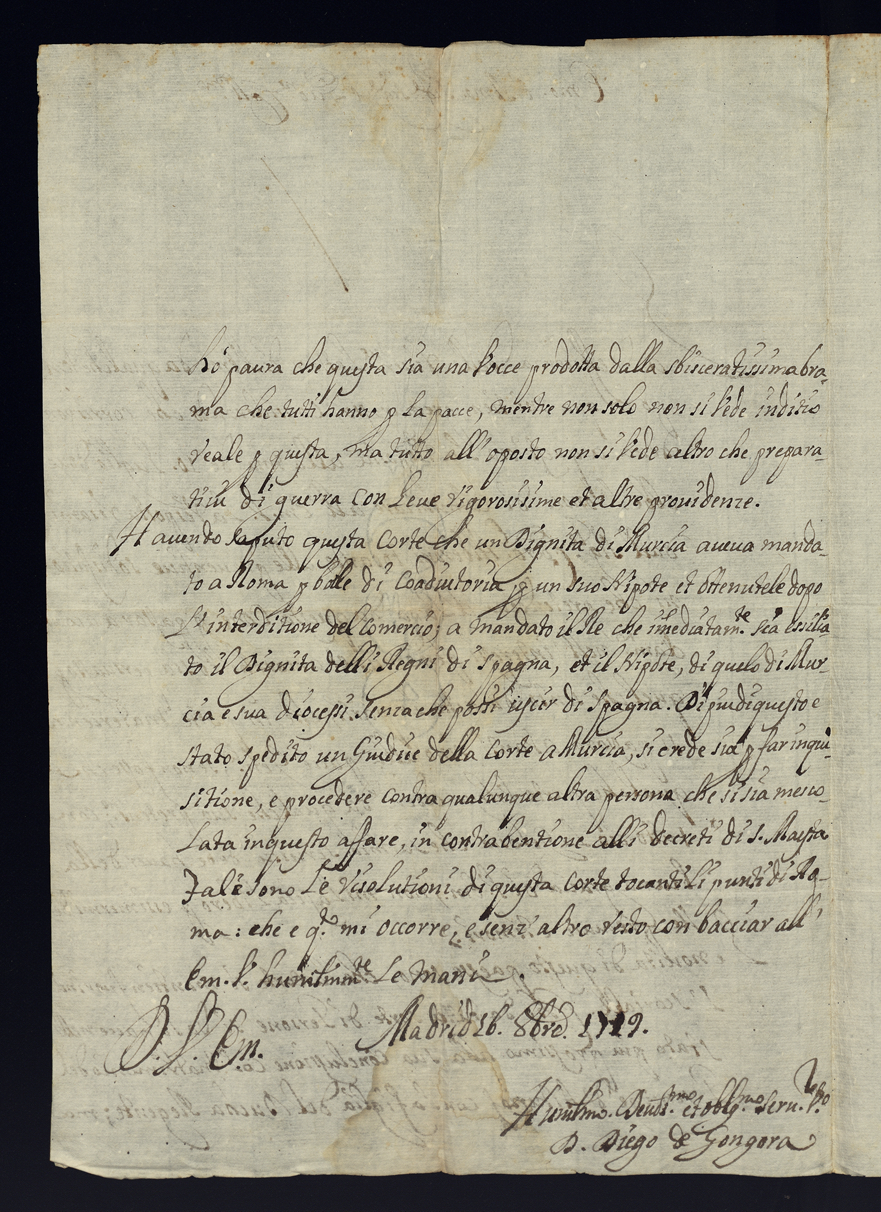 hò paura che questa sia una Vocce prodotta dalla sbisceratissima bra-
ma che tutti hanno p La pacce, mentre non solo non si Vede inditio
reale p questa, ma tutto all' oposto non si Vede altro che prepara-
tiui di guerra con Leue rigorosissime et altre prouidenze.
Hauendo saputo questa Corte che un Dignita di Murcia aueua manda-
to a Roma p bole di Coaduitoria p un suo Nipote et ottenutele dopo
L'interditione del Comercio; a mandato il Re che imediatam.te sia essilia-
to il Dignita delli Regni di Spagna, et il Nipote, di quelo di Mur-
cia e sua diocesi senza che possi uscir di Spagna. Di piu di questo e
stato spedito un Giudice della Corte a Murcia, si crede sia p far inqui-
sitione, e procedere contra qualunque altra persona che si sia mesco-
Lata in questo affare, in contrabentione alli decreti di S. Maesta
Tali sono Le risolutioni di questa Corte tocanti Li punti di Ro-
ma: che e q.to mi occorre, e senz' altro resto con bacciar all'
Em. V. humilmte Le mani.
D. V. Em. Madrid 16. 8bre. 1719.
Humilmo. Deuot.mo et oblig.mo Seru.re V.o
D. Diego de Gongora